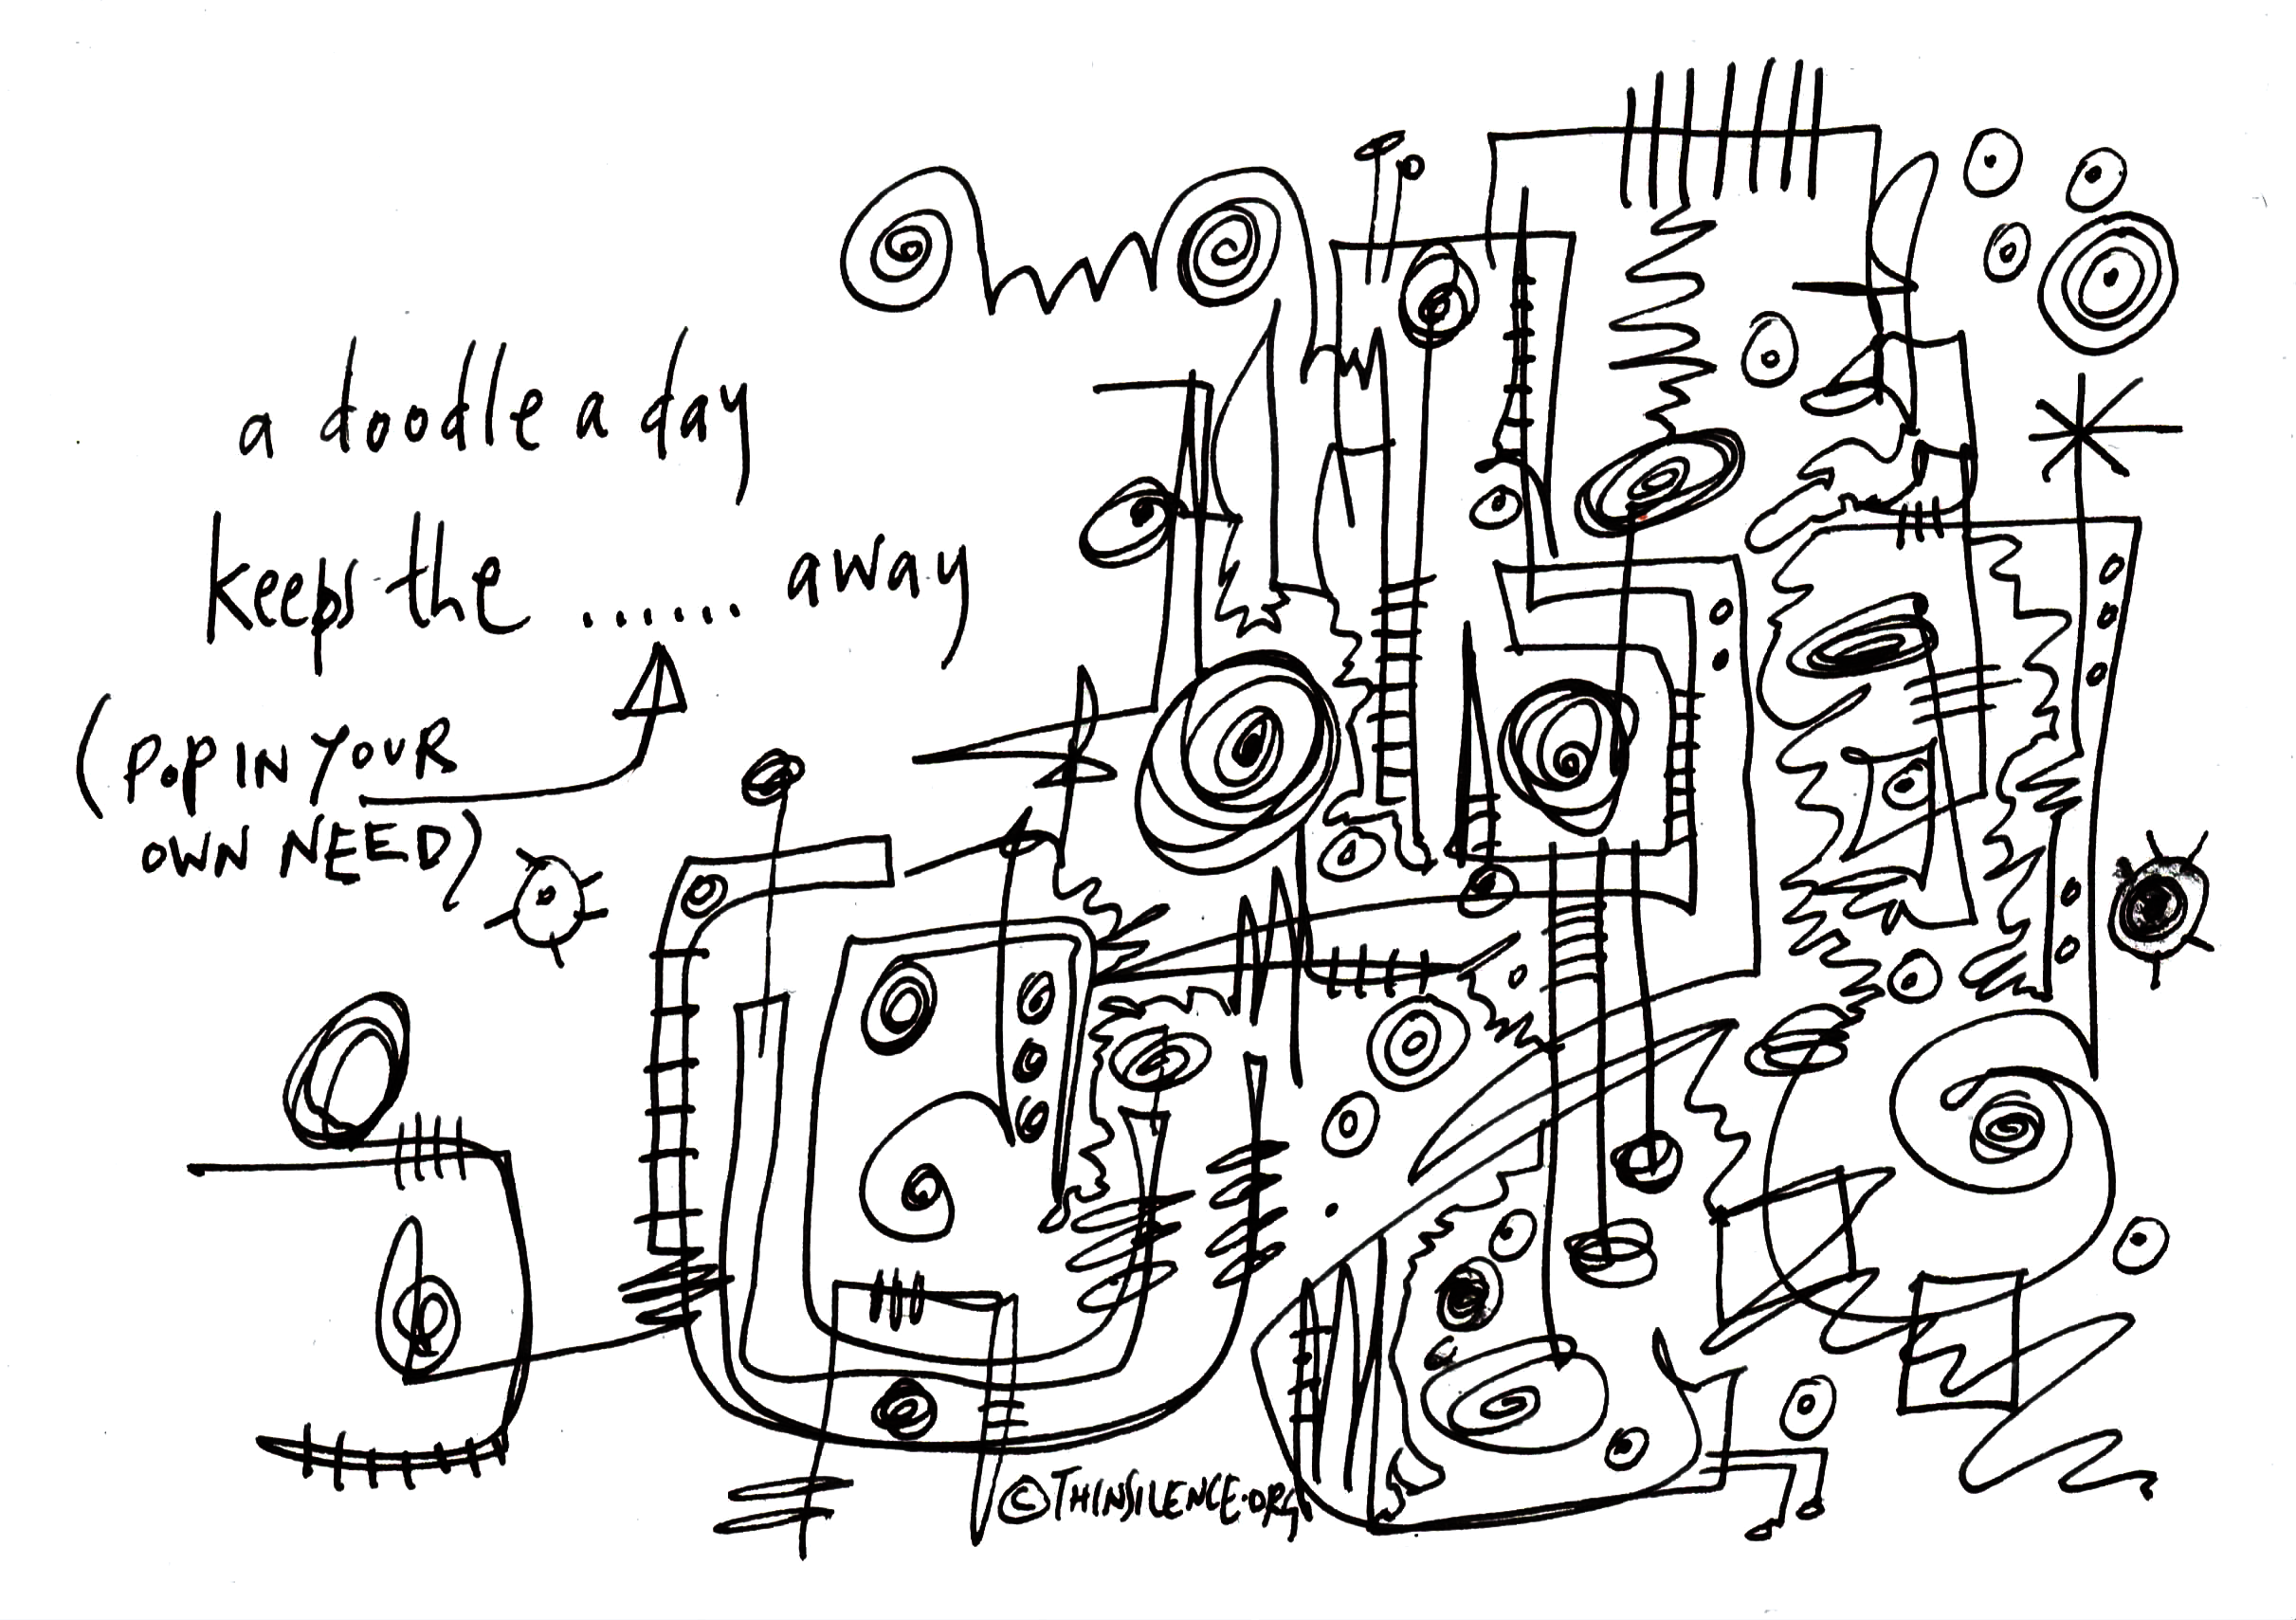 a doodle a day
keeps the ...... away
(POP IN YOUR
OWN NEED)
©THINSILENCE.ORG